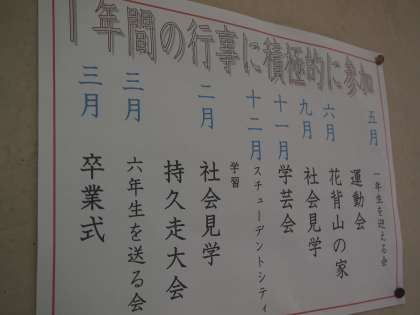 1年間の行事に積極的に参加
五月
一年生を迎える会
運動会
六月
花背山の家
九月
社会見学
十一月
学芸会
十二月
スチューデントシティ
学習
二月
社会見学
持久走大会
三月
六年生を送る会
三月
卒業式